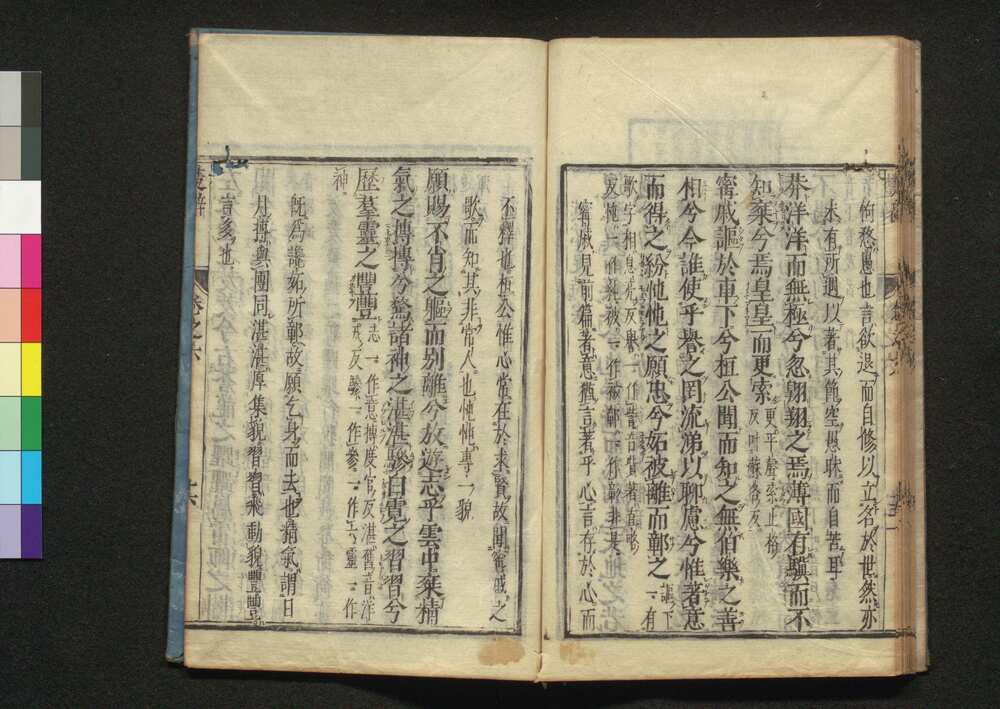 恂愁愚也言欲退而自修以立名於世然亦
未有所遇以著其飽空愚昧而自苦耳
莽洋洋而無極兮忽翱翔之焉薄國有驥而不
知棄兮焉皇皇而更索更平聲索止格反叶蘇各反
甯戚謳於車下兮桓公聞而知之無伯樂之善
相兮今誰使乎譽之罔流涕以聊慮兮惟著意
而得之紛忳忳之願忠兮妒被離而鄣之謳下一有
歌字相息亮反
甯戚見前篇著意猶言著乎心言存於心而
不釋也桓公惟心常在於求賢故聞甯戚之
歌而知其非常人也忳忳專一貌
願賜不肖之軀而別離兮放遊志乎雲中棄精
氣之摶摶兮騖諸神之湛湛驂白霓之習習兮
歷羣靈之豐豐志一作意摶度官反湛舊音淫
神
既為讒妒所鄣故願乞身而去也精氣謂日
月摶與團同湛湛厚集貌習習飛動貌豐豐
言多也
楚辭
卷之六